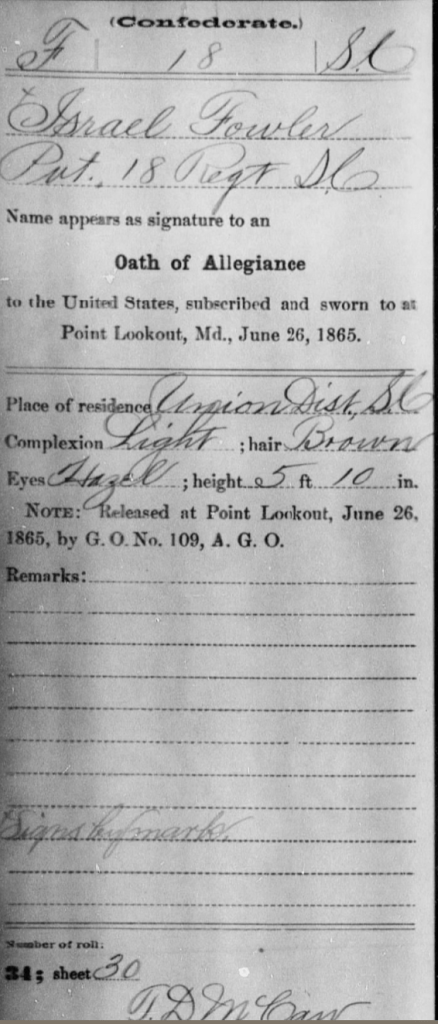 (Confederate.)
F | 18 | S.C
Israel Fowler
Pvt., 18 Regt S.C.
Name appears as signature to an
Oath of Allegiance
to the United States, subscribed and sworn to at
Point Lookout, Md., June 26, 1865.
Place of residence Union Dist., S.C.
Complexion Light ; hair Brown
Eyes Hazel ; height 5 ft 10 in.
NOTE: Released at Point Lookout, June 26,
1865, by G. O. No. 109, A. G. O.
Remarks:
Signs by mark.
Number of roll:
34; sheet 30
T. D. McCaw